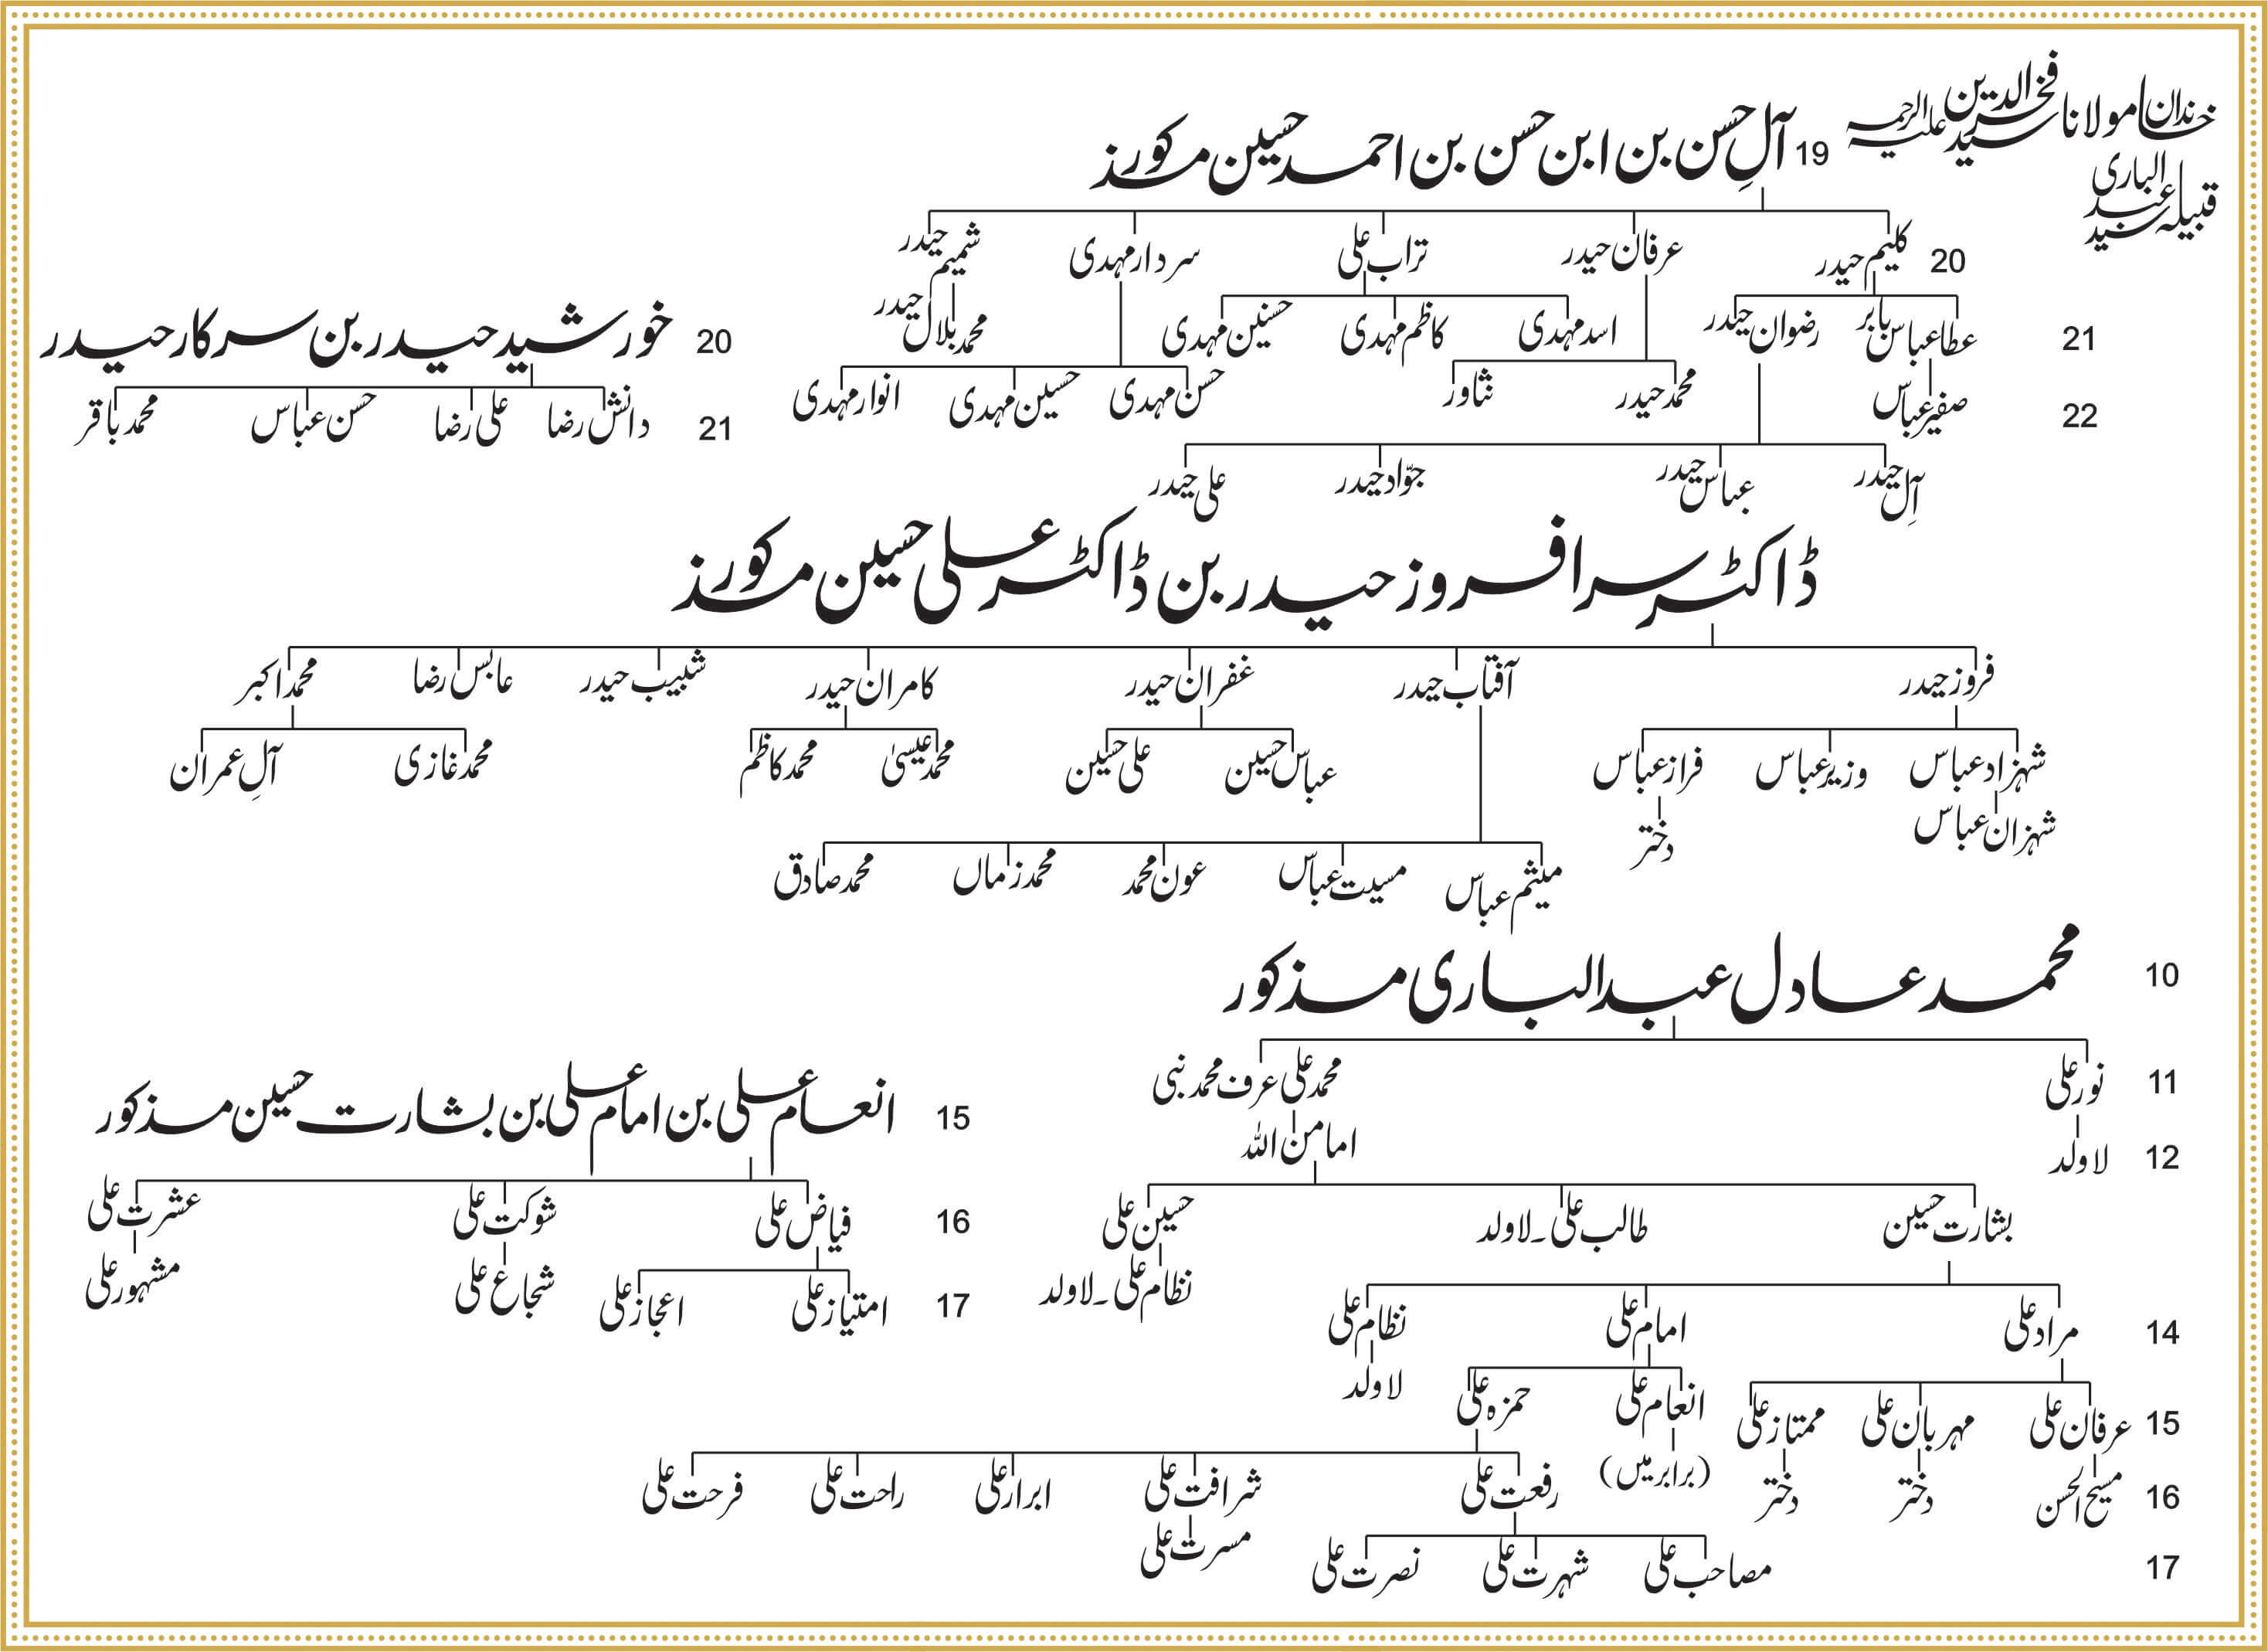 خاندان مولانا سید فخرالدین علیہ الرحمہ
قبیلہ سید عبد الباری
19 آلِ حسن بن ابن حسن بن احمد حسین مذکور
20 کلیم حیدر عرفان حیدر تراب علی سردار مہدی شمیم حیدر
21 عطا عباس بابر رضوان حیدر اسد مہدی کاظم مہدی حسنین مہدی محمد بلال حیدر
22 صفیر عباس محمد حیدر نثاور حسن مہدی حسین مہدی انوار مہدی
آلِ حیدر عباس حیدر جوّاد حیدر علی حیدر
20 خورشید حیدر بن سرکار حیدر
21 دانش رضا علی رضا حسن عباس محمد باقر
ڈاکٹر سرافروز حیدر بن ڈاکٹر علی حسین مذکور
فروز حیدر آفتاب حیدر غفران حیدر کامران حیدر شبیب حیدر عابس رضا محمد اکبر
شہزاد عباس وزیر عباس فراز عباس عباس حسین علی حسین محمد عیسیٰ محمد کاظم محمد غازی آلِ عمران
شہزان عباس دختر
میثم عباس مسیت عباس عون محمد محمد زماں محمد صادق
10 محمد عادل عبدالباری مذکور
11 نور علی محمد علی عرف محمد نبی
12 لاولد امامن اللہ
بشارت حسین طالب علی۔لاولد حسین علی
نظام علی۔لاولد
14 مراد علی امام علی نظام علی
لاولد
15 عرفان علی مہربان علی ممتاز علی انعام علی حمزہ علی
16 مسیح الحسن دختر دختر (برابر میں) رفعت علی شرافت علی ابرار علی راحت علی فرحت علی
17 مصاحب علی شہرت علی نصرت علی مسرت علی
15 انعام علی بن امام علی بن بشارت حسین مذکور
16 فیاض علی شوکت علی عشرت علی
17 امتیاز علی اعجاز علی شجاع علی مشہور علی